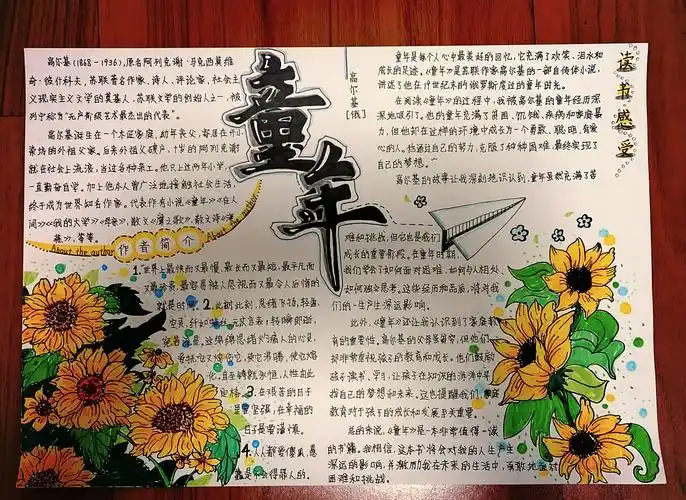 高尔基(1868-1936),原名阿列克谢·马克西莫维
奇·彼什科夫,苏联著名作家、诗人、评论家,社会主
义现实主义文学的奠基人,苏联文学的创始人之一,被
列宁称为"无产阶级艺术最杰出的代表"。
高尔基诞生在一个木匠家庭,幼年丧父,寄居在开小
染坊的外祖父家。后来外祖父破产,十岁的阿列克谢
就在社会上流浪,当过各种杂工。他只上过两年小学,
一直勤奋自学。加上他本人曾广泛地接触社会生活,
终于成为世界知名作家。代表作有小说《童年》《在人
间》《我的大学》《母亲》,散文《鹰之歌》,散文诗《海
燕》,等等。
About the author
作者简介
About the author
童年
高尔基
[俄]
1.世界上最快而又最慢,最长而又最短,最平凡而
又最珍贵,最容易被人忽视而又最令人后悔的
就是时间。2.此刻
3.在艰苦的日子
里要坚强,在幸福的
日子里要谨慎。
4.人人都
读书感受
童年是每个人心中最美好的回忆,它充满了欢笑、泪水和
成长的足迹。《童年》是苏联作家高尔基的一部自传体小说,
讲述了他在19世纪末的俄罗斯度过的童年时光。
在阅读《童年》的过程中,我被高尔基的童年经历深
深地吸引了。他的童年充满了贫困、饥饿、疾病和家庭暴
力,但他却在这样的环境中成长为一个勇敢、聪明、有爱
心的人。他通过自己的努力,克服了种种困难,最终实现了
自己的梦想。
高尔基的故事让我深刻地认识到,童年虽然充满了苦
难和挑战,但它也是我们
成长的重要阶段。在童年时期,
我们学会了如何面对困难、如何与人相处、
如何独立思考。这些经历和品质,将对我
们的一生产生深远影响。
此外,《童年》还让我认识到了家庭教
育的重要性。高尔基的父母虽穷,但他们
却非常重视孩子的教育和成长。他们鼓励
孩子读书、学习,让孩子在知识的海洋中寻
找自己的梦想和未来。这也提醒我们,家庭
教育对于孩子的成长和发展至关重要。
总的来说,《童年》是一本非常值得一读
的书籍。我相信,这本书将会对我的人生产生
深远的影响,并激励我在未来的生活中,勇敢地面对
困难和挑战。